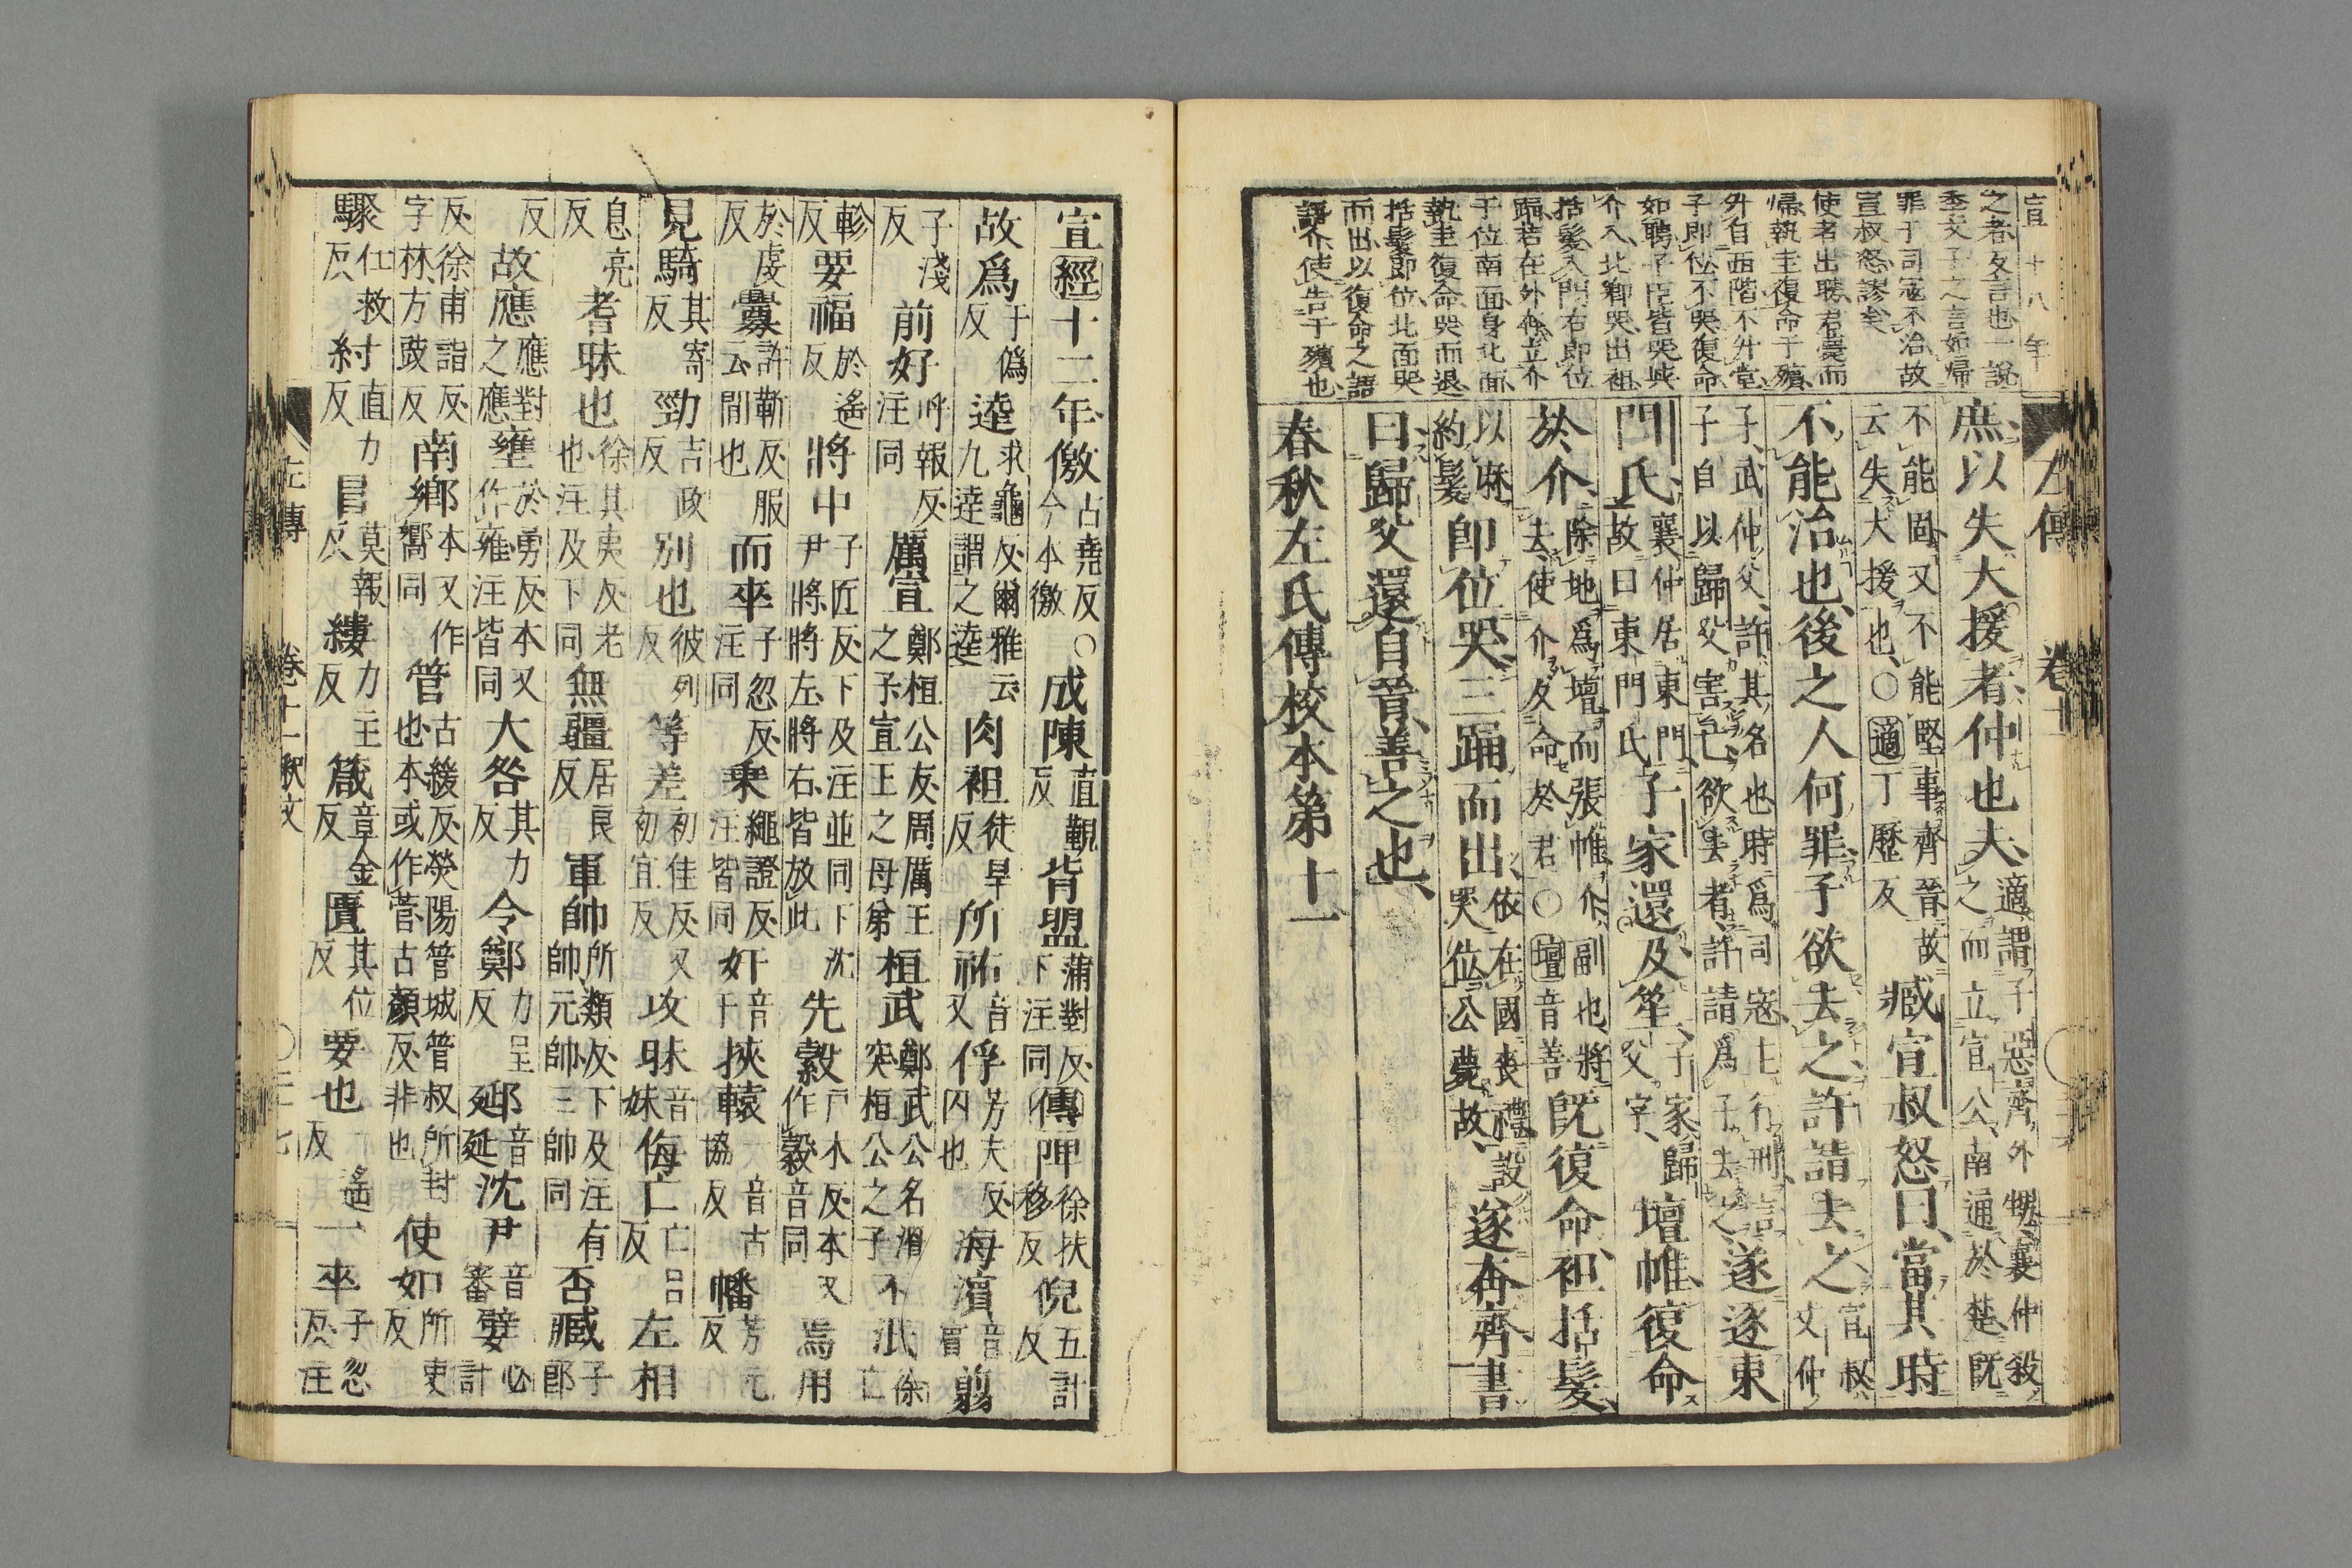 宣十八年
之者反言也一說
季文子之言如帰
罪于司寇不治故
宣叔怒謬矣
使者出聘君薨而
帰執圭復命于殯
升自西階不升堂
子即位不哭復命
如聘子臣皆哭與
介入北鄉哭出袒
括髮入門右即位
踊若在外立介
于位南面身北面
執圭復命哭而退
括髮即位北面哭
而出以復命之語
語介使告于殯也
左傳 卷十一
庶以失大援者仲也夫適謂子惡齊外甥襄仲殺之而立宣公南通於楚既
不能固又不能堅事齊晉故云失大援也○適丁歷反臧宣叔怒曰當其時
不能治也後之人何罪子欲去之許請去之宣叔文仲
子武仲父許其名也時爲司寇主行刑言子自以歸父害己欲去者許請爲子去之遂逐東
門氏襄仲居東門故曰東門氏子家還及笙子家歸父字壇帷復命
於介除地爲壇而張帷介副也將去使介反命於君○壇音善既復命袒括髮
以麻約髮即位哭三踊而出依在國喪禮設哭位公薨故遂奔齊書
曰歸父還自晉善之也
春秋左氏傳校本第十一
宣經十二年儌古堯反○今本徼成陳直覲反背盟蒲對反下注同傳陴徐扶移反倪五計反
故爲于僞反逵求龜反爾雅云九逵謂之逵肉袒徒旱反所祐音又俘芳夫反囚也海濱音賓翦
子淺反前好呼報反注同厲宣鄭桓公友周厲王之子宣王之母弟桓武鄭武公名滑突桓公之子不泯徐亡
軫反要福於遙反將中子匠反下及注並同下沈尹將將左將右皆放此先縠戶木反本又作縠音同焉用
於虔反釁許靳反服云間也而卒子忽反注同乘繩證反注皆同奸音干挾轅一音古協反幡芳元反
見騎其寄反勁吉政反別也彼列反等差初佳反又初宜反攻昧音妹侮亡亡呂反左相
息亮反耆昧也徐其夷反老也注及下同無疆居良反軍帥所類反下及注有帥元帥三帥同否臧子郎
反故應應對之應壅於勇反本又作雍注皆同大咎其力反令鄭力呈反郔音延延沈尹音審嬖必計
反徐甫詣反字林方豉反南鄉本又作嚮同管古緩反滎陽管城管叔所封也本或作菅古顏反非也使如所吏反
驟仕救反紂直力反冒莫報反縷力主反箴章金反匱其位反要也一遙反卒子忽反注
左傳 卷十一釋文 ○二七